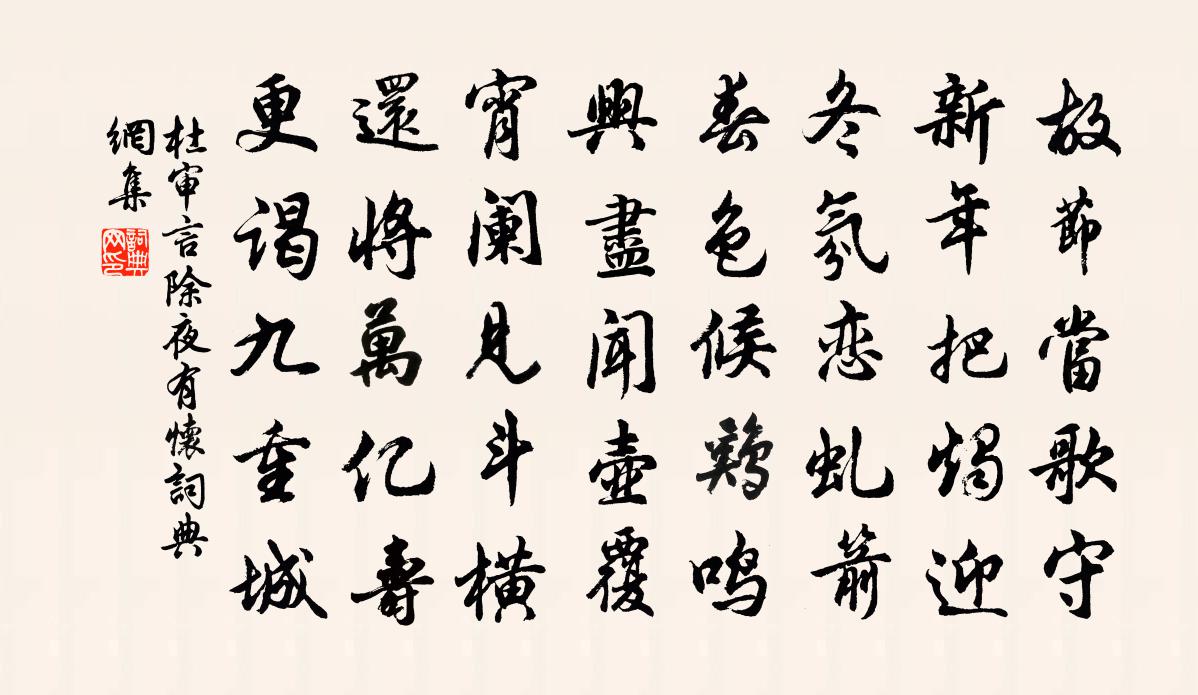 故節當歌守
新年把燭迎
冬氛恋虬箭
春色候鷄鳴
興盡聞壺覆
宵闌見斗橫
還將萬亿壽
更謁九重城
杜审言除夜有懷詞典
網集
詞典
网印